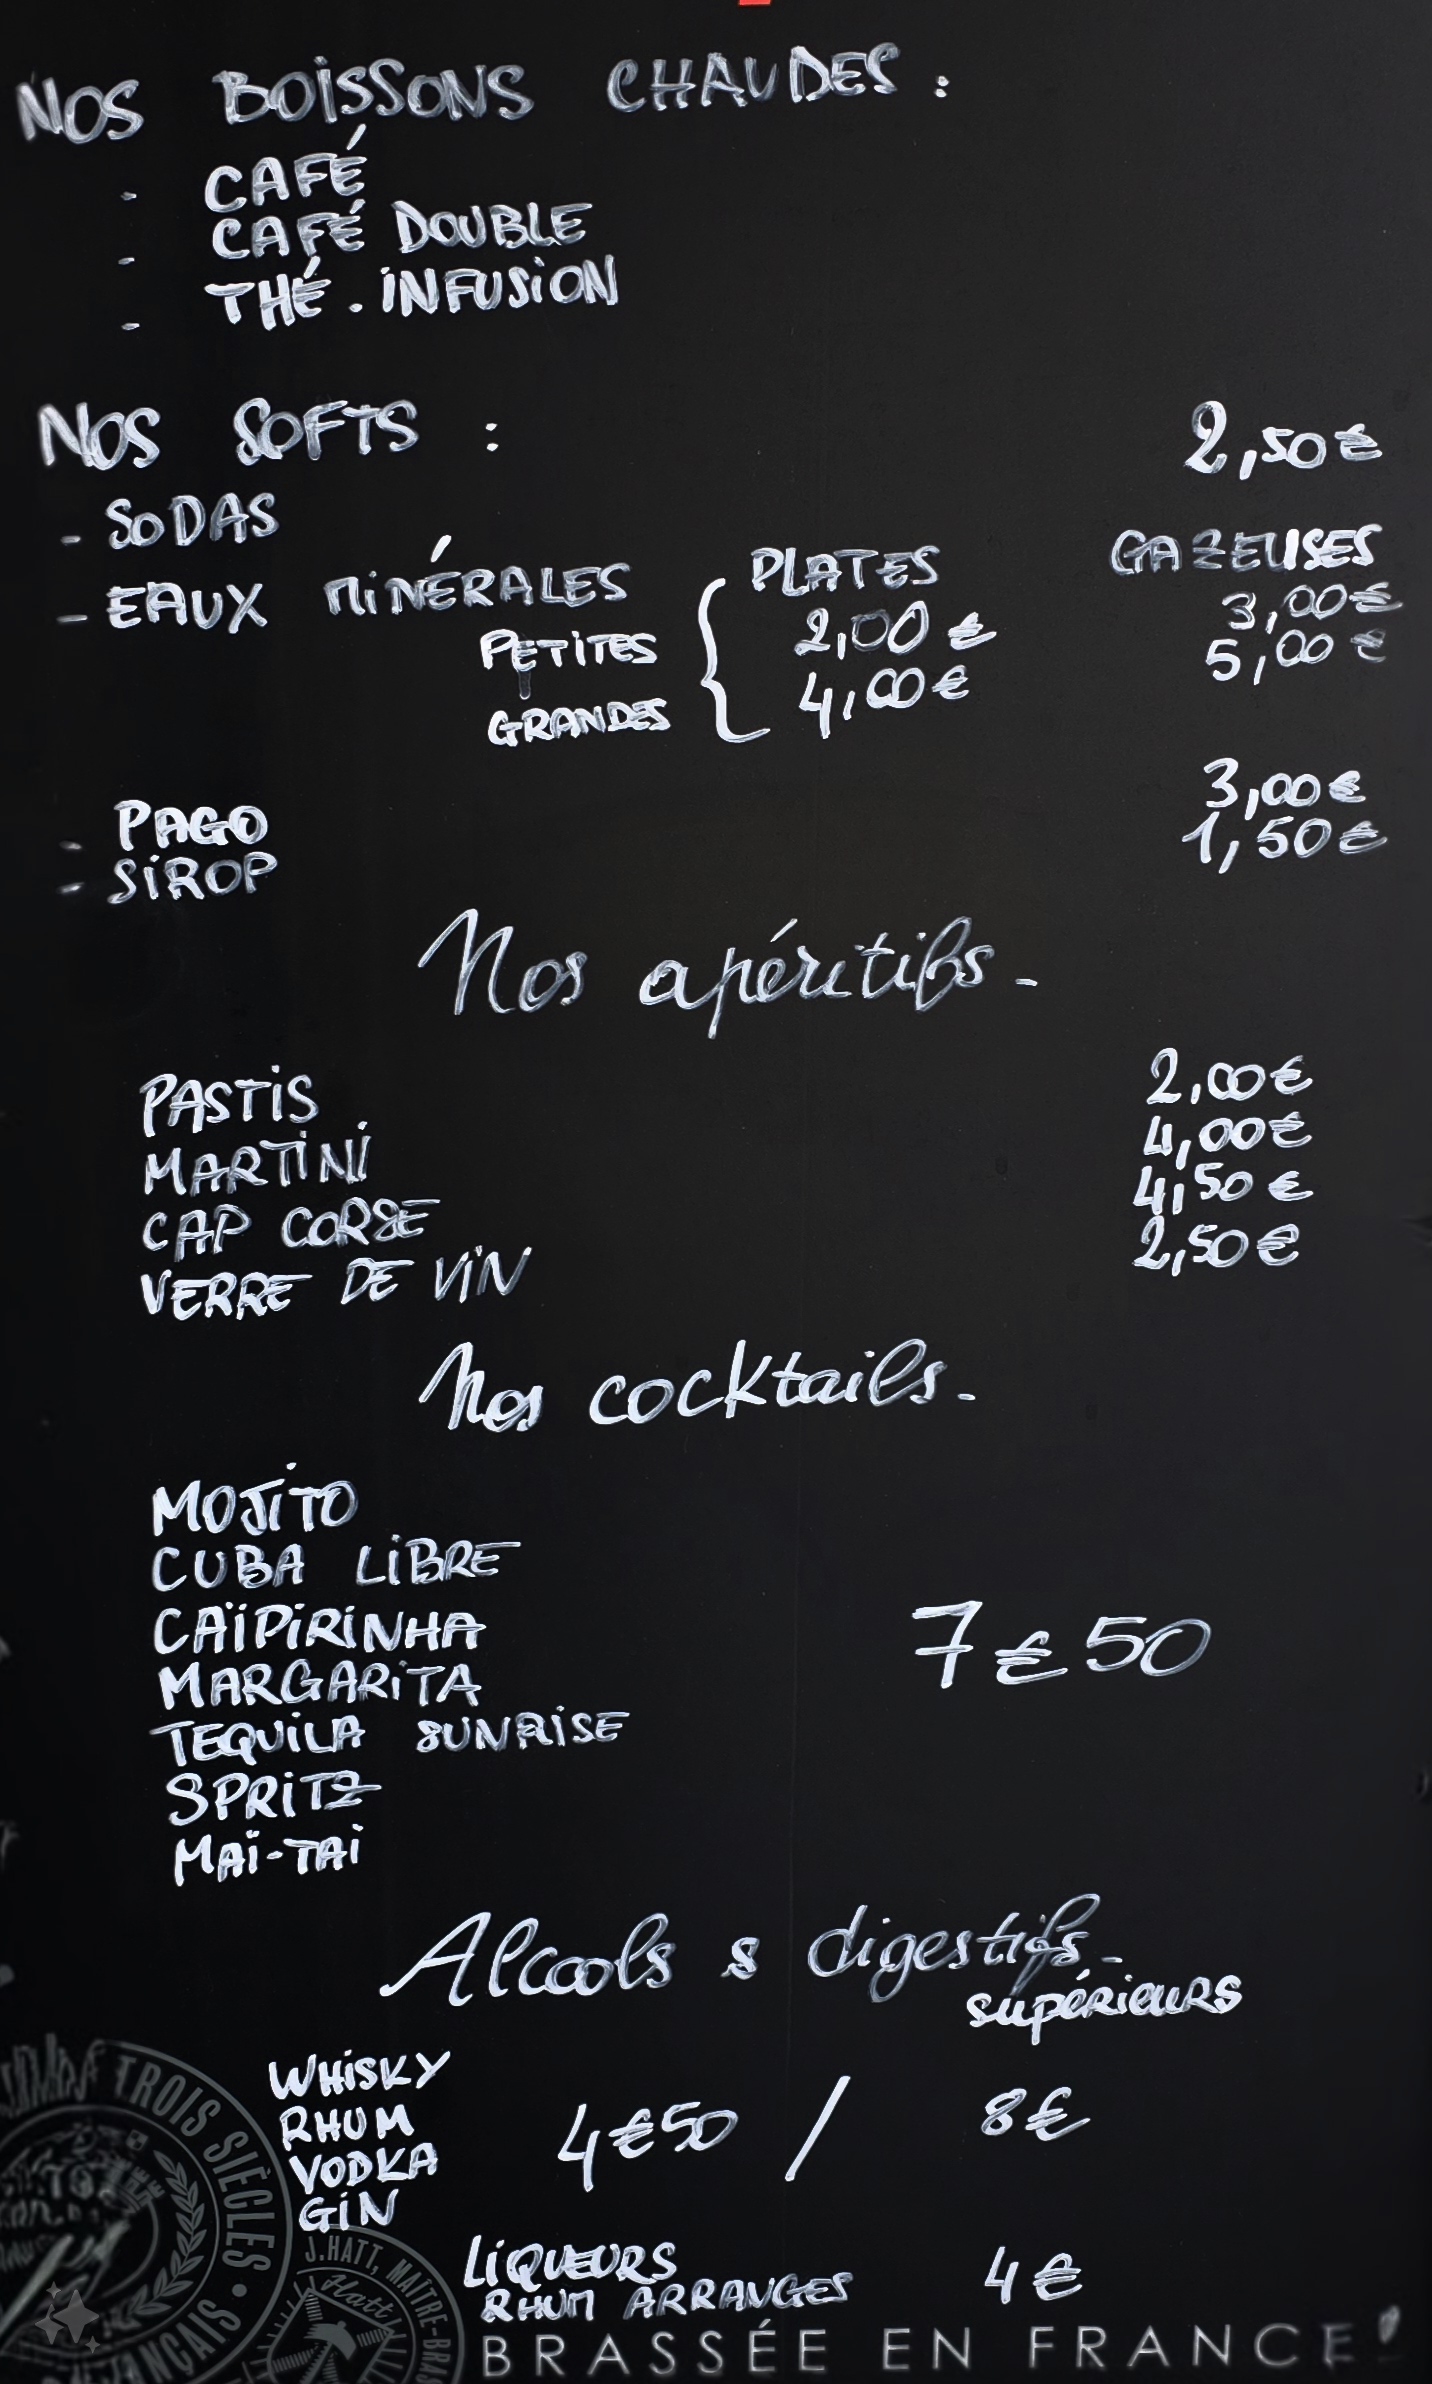 NOS BOISSONS CHAUDES :
- CAFÉ
- CAFÉ DOUBLE
- THÉ . INFUSION
NOS SOFTS :
- SODAS 2,50€
- EAUX MINÉRALES PLATES GAZEUSES
PETITES 2,00€ 3,00€
GRANDES 4,00€ 5,00€
- PAGO 3,00€
- SIROP 1,50€
Nos apéritifs -
PASTIS 2,00€
MARTINI 4,00€
CAP CORSE 4,50€
VERRE DE VIN 2,50€
Nos cocktails -
MOJITO
CUBA LIBRE
CAÏPIRINHA
MARGARITA
TEQUILA SUNRISE
SPRITZ
MAÏ-TAI
7€50
Alcools & digestifs -
supérieurs
WHISKY
RHUM
VODKA
GIN
4€50 / 8€
LIQUEURS
RHUM ARRANGES
4€
TROIS SIÈCLES •
J.HATT, MAÎTRE-BRAS
Hatt
BRASSÉE EN FRANCE